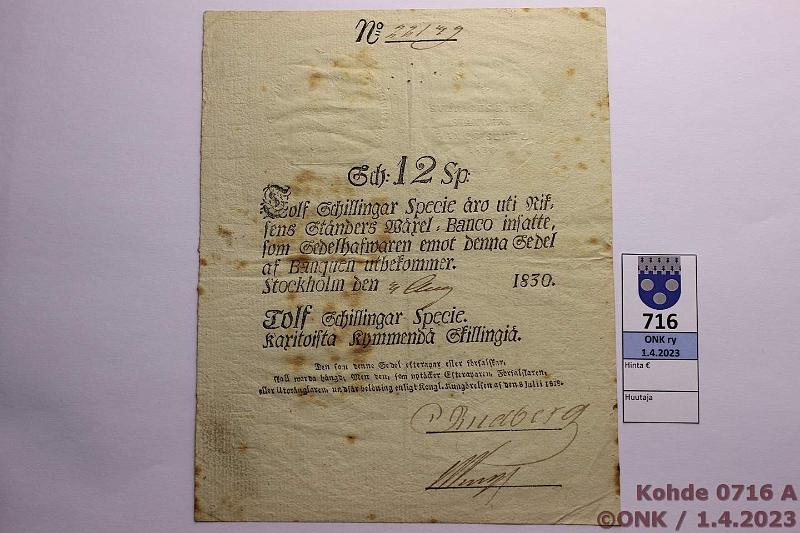 No 22149
Sch: 12 Sp:
Tolf Schillingar Specie äro uti Rik-
sens Ständers Wäxel-Banco insatte,
som Sedelhafwaren emot denna Sedel
af Banquen utbekommer.
Stockholm den 4 Aug 1830.
Tolf Schillingar Specie.
Kaxitoista Kymmendä Skillingiä.
Den som denne Sedel efterapar eller förfalskar,
skall warda hängd; Men den, som uptäcker Efteraparen, Förfalskaren,
eller Utprånglaren, undfår belöning enligt Kongl. Kungörelsen af den 8 Julii 1818.
Rudberg
716
ONK ry
1.4.2023
Hinta €
Huutaja
Kohde 0716 A
©ONK / 1.4.2023